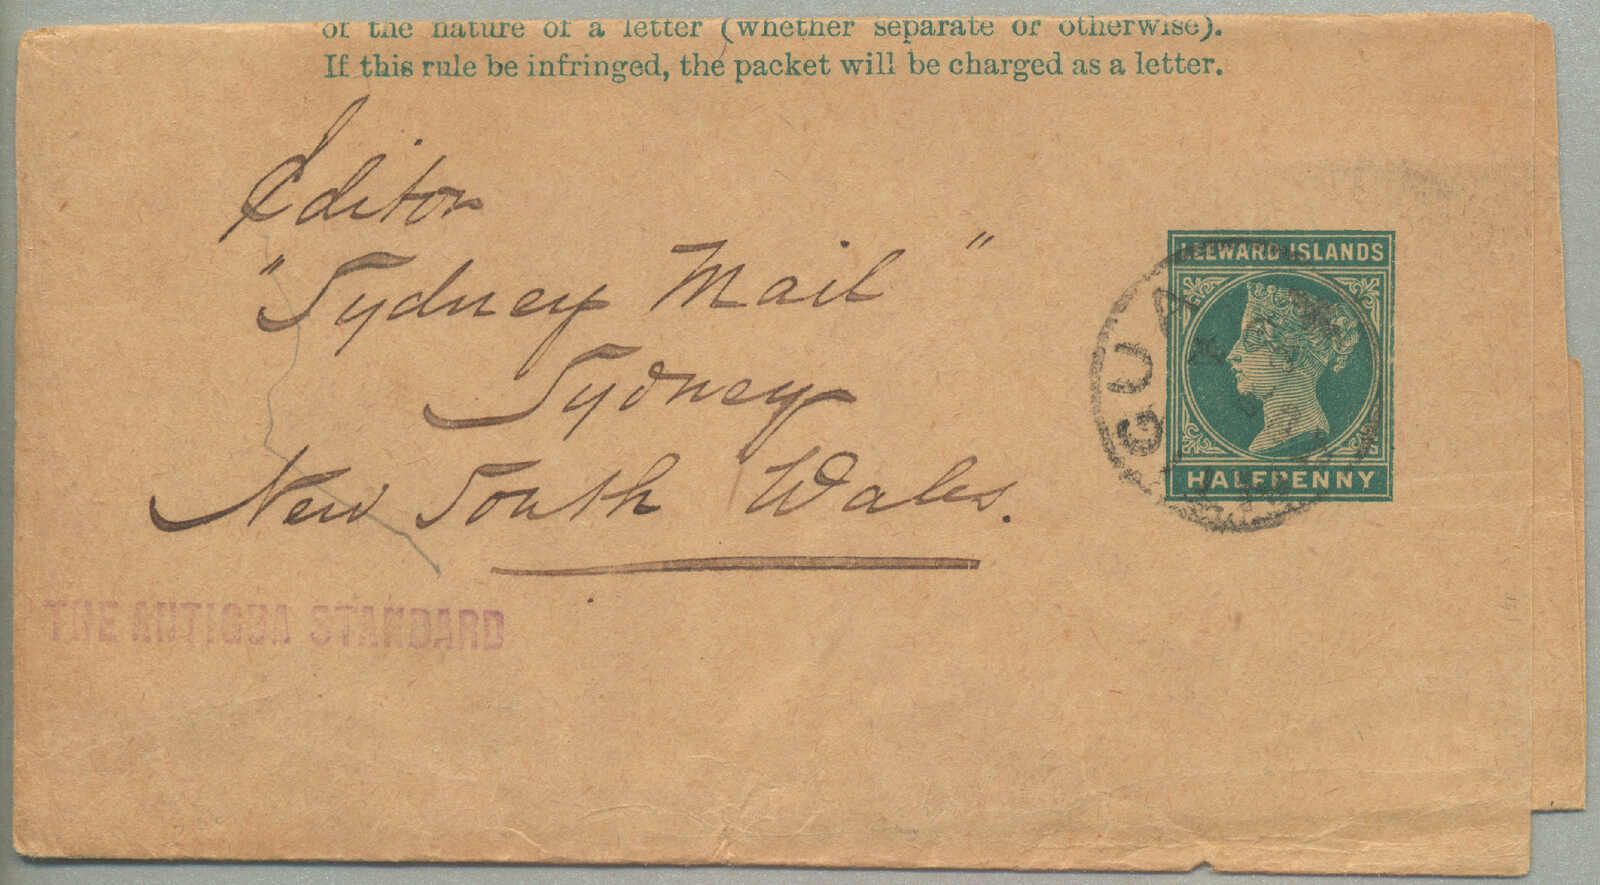 of the nature of a letter (whether separate or otherwise).
If this rule be infringed, the packet will be charged as a letter.
Editor
"Sydney Mail"
Sydney
New South Wales.
THE ANTIGUA STANDARD
LEEWARD ISLANDS
HALFPENNY
GUA